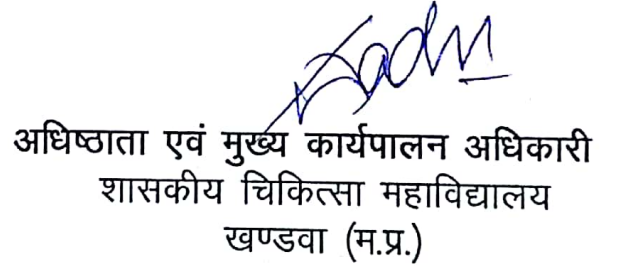 अधिष्ठाता एवं मुख्य कार्यपालन अधिकारी
शासकीय चिकित्सा महाविद्यालय
खण्डवा (म.प्र.)